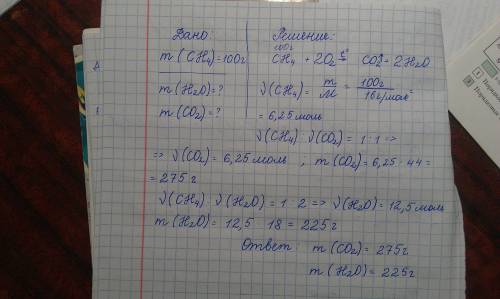 Дано:
Решение:
m(CH₄)=100г
100г
CH₄ + 2O₂ =t° CO₂ + 2H₂O
m(H₂O)=?
m(CO₂)=?
ν(CH₄) = m/M = 100г/16г/моль =
= 6,25 моль
ν(CH₄) : ν(CO₂) = 1 : 1 =>
=> ν(CO₂) = 6,25 моль , m(CO₂) = 6,25 · 44 =
= 275 г
ν(CH₄) : ν(H₂O) = 1 : 2 => ν(H₂O) = 12,5 моль
m(H₂O) = 12,5 · 18 = 225 г
Ответ: m(CO₂) = 275г
m(H₂O) = 225г